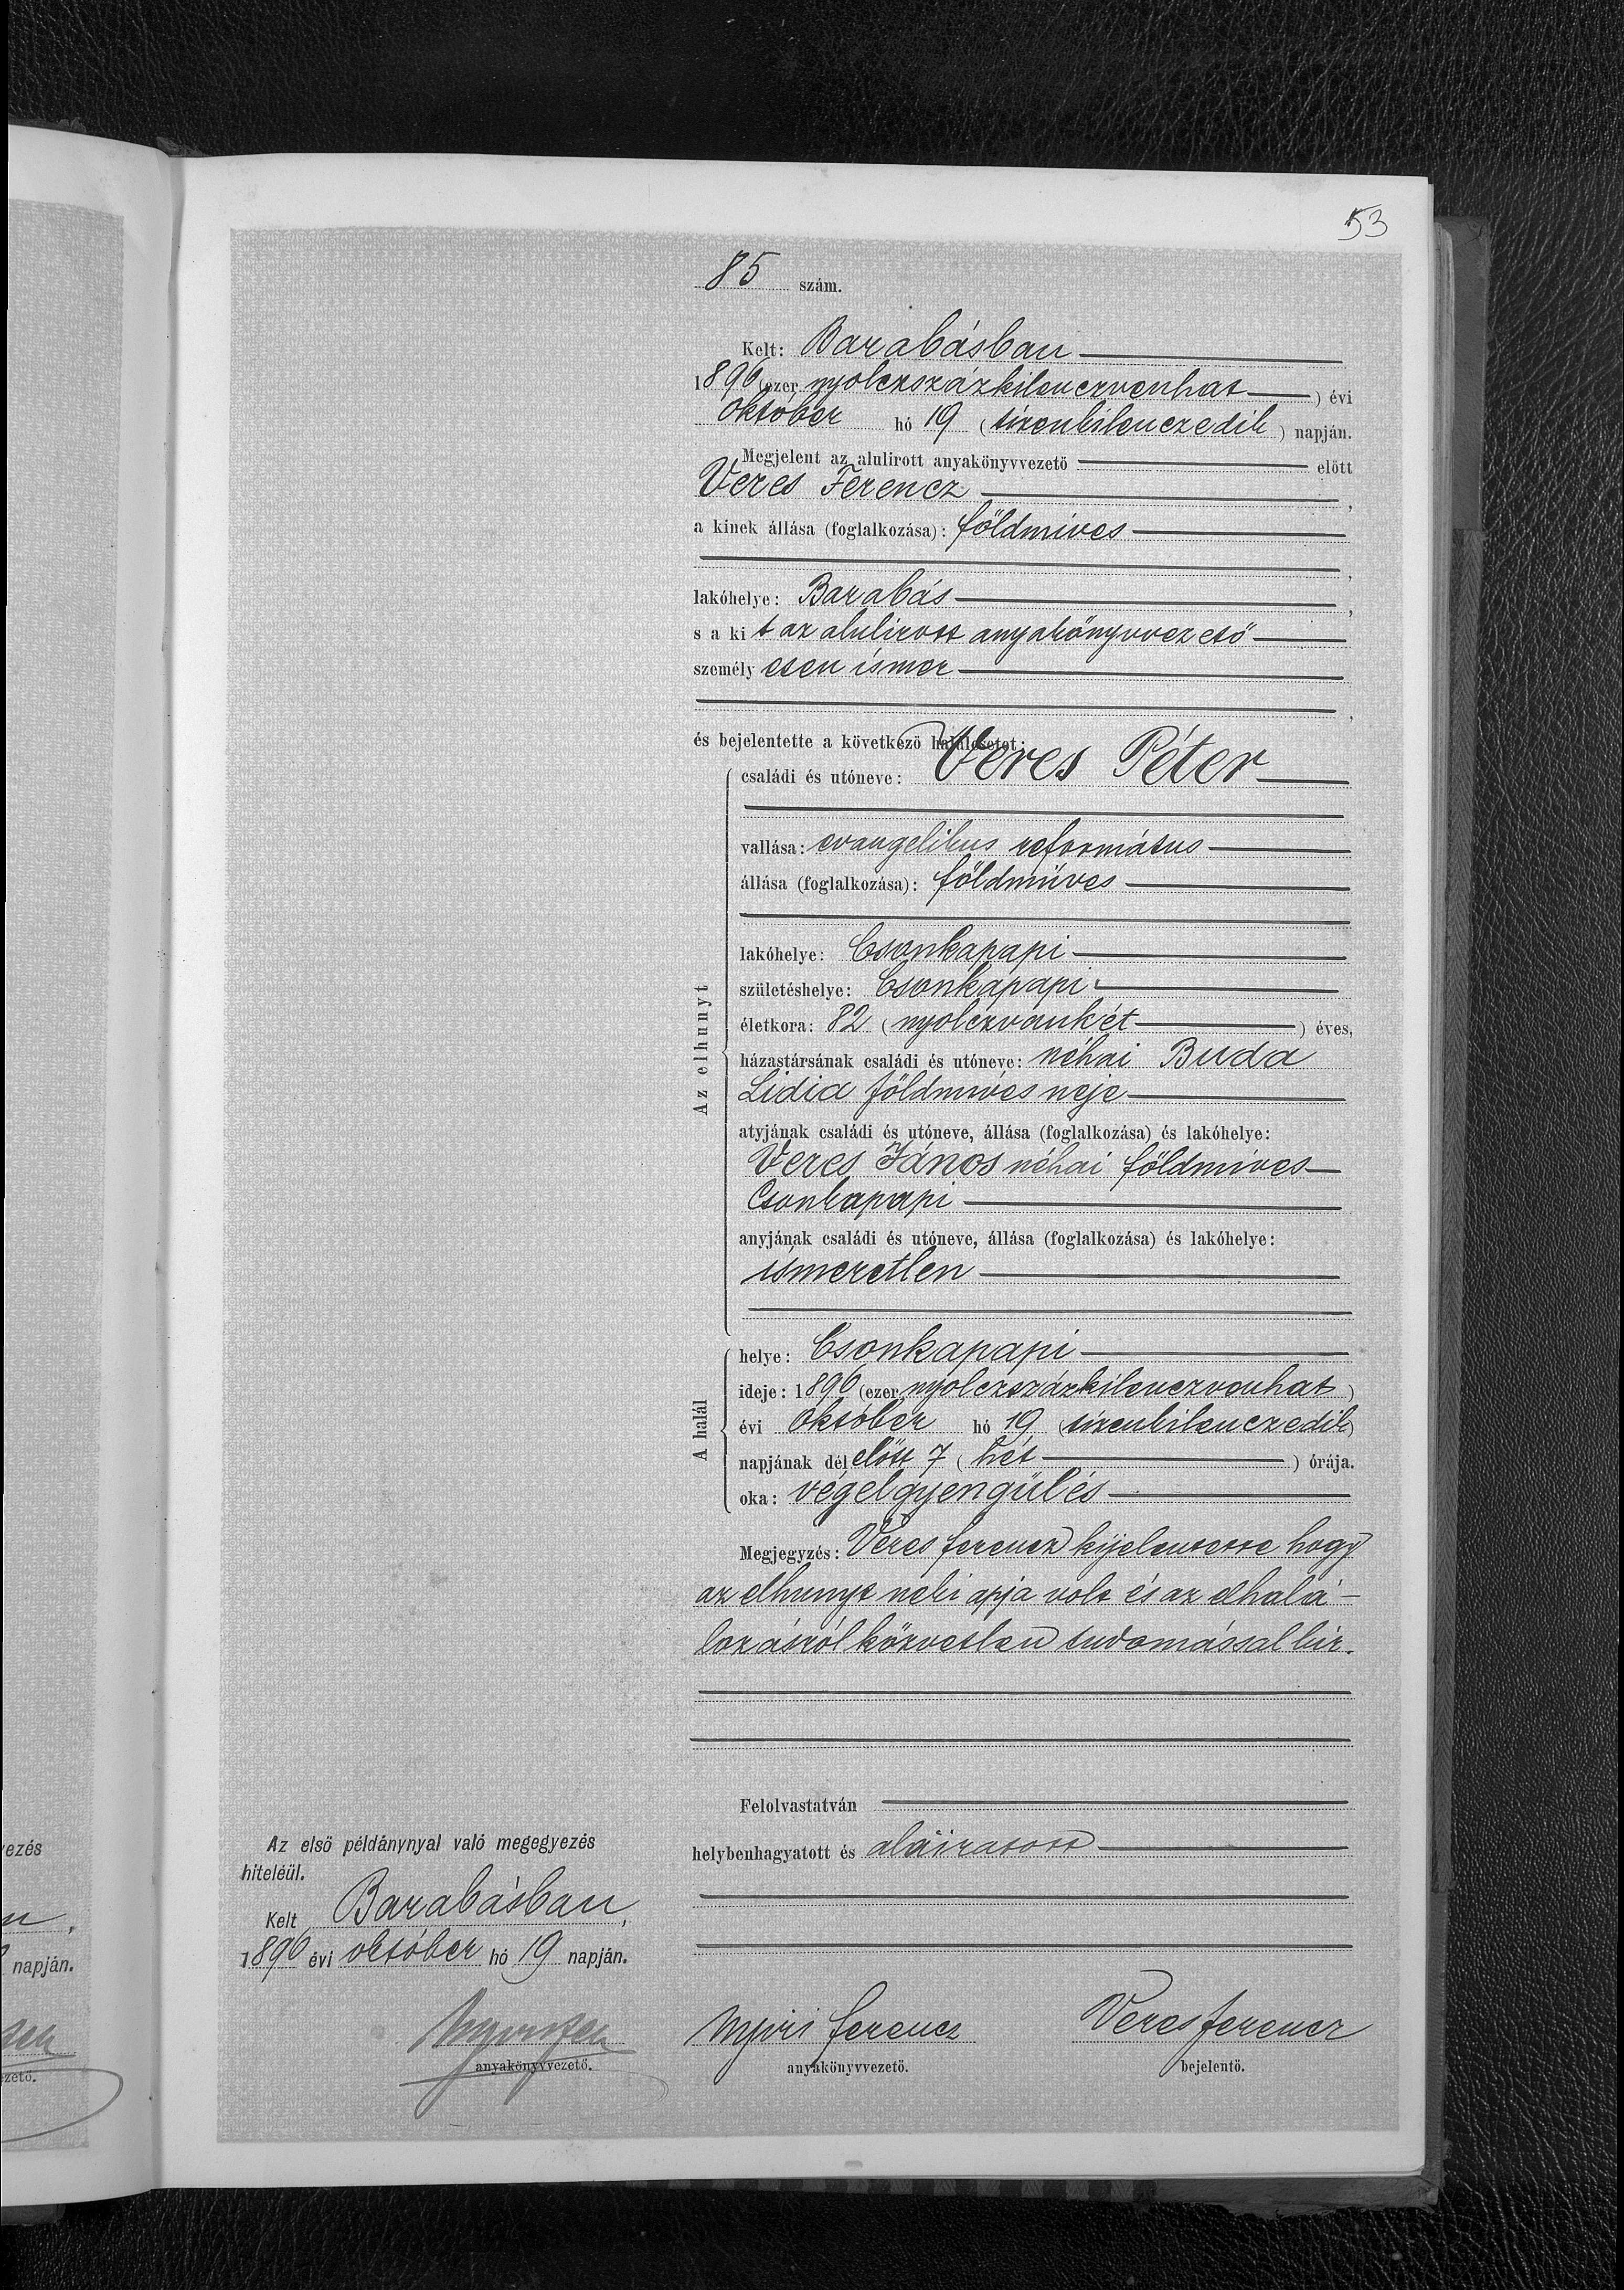 53
85 szám.
Kelt: Barabásban
1896 (ezer nyolczszázkilenczvenhat) évi
október hó 19 (tizenkilenczedik) napján.
Megjelent az alulirott anyakönyvvezető előtt
Veres Ferencz,
a kinek állása (foglalkozása): földmíves
,
lakóhelye: Barabás,
s a kit az alulirott anyakönyvvezető
személyesen ísmer
,
és bejelentette a következő halálesetet:
Az elhunyt
családi és utóneve: Veres Péter
vallása: evangelikus református
állása (foglalkozása): földmüves
lakóhelye: Csonkapapi
születéshelye: Csonkapapi
életkora: 82 (nyolczvankét) éves,
házastársának családi és utóneve: néhai Buda
Lidia földmíves neje
atyjának családi és utóneve, állása (foglalkozása) és lakóhelye:
Veres János néhai földmíves
Csonkapapi
anyjának családi és utóneve, állása (foglalkozása) és lakóhelye:
ismeretlen
A halál
helye: Csonkapapi
ideje: 1896 (ezer nyolczszázkilenczvenhat)
évi október hó 19 (tizenkilenczedik)
napjának délelőtt 7 (hét) órája.
oka: végelgyengülés
Megjegyzés: Veres ferencz kijelentette hogy
az elhunyt neki apja volt és az elhalá-
lozásról közvetlen tudomással bir.
Felolvastatván
helybenhagyatott és aláiratott
Az első példánynyal való megegyezés
hiteléül.
Kelt Barabásban,
1896 évi október hó 19 napján.
anyakönyvvezető.
Nyiri ferencz
anyakönyvvezető.
Veres ferencz
bejelentő.
ezés
napján.